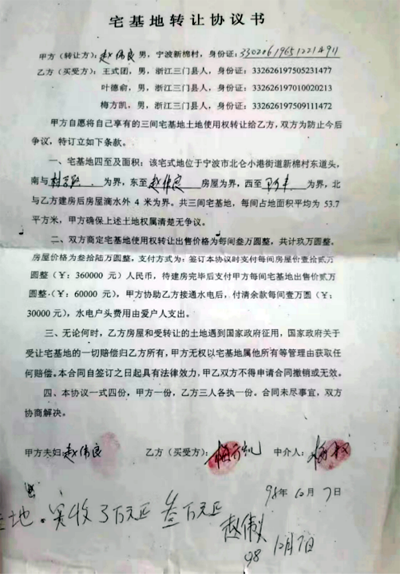 宅基地转让协议书
甲方（转让方）：赵伟良，男，宁波新棉村，身份证：330206196512214911
乙方（买受方）：王式团，男，浙江三门县人，身份证：332626197505231477
叶德俞，男，浙江三门县人，身份证：332626197010020213
梅方凯，男，浙江三门县人，身份证：332626197509111472
甲方自愿将自己享有的三间宅基地土地使用权转让给乙方，双方为防止今后
争议，特订立如下条款。
一、宅基地四至及面积：该宅式地位于宁波市北仑小港街道新棉村东道头，
南与 为界，东至赵伟良房屋为界，西至 为界，北
与乙方建房后房屋滴水外 4 米为界。共三间宅基地，每间占地面积平均为 53.7
平方米，甲方确保上述土地权属清楚无争议。
二、双方商定宅基地使用权转让出售价格为每间叁万圆整，共计玖万圆整，
房屋价格为叁拾陆万圆整，支付方式为：签订本协议时支付每间房屋价壹拾贰万
圆整（￥：360000 元）人民币，待建房完毕后支付甲方每间宅基地出售价贰万
圆整（￥：60000 元），甲方协助乙方接通水电后，付清余款每间壹万圆（￥：
30000 元），水电户头费用由爱户人支出。
三、无论何时，乙方房屋和受转让的土地遇到国家政府征用，国家政府关于
受让宅基地的一切赔偿归乙方所有，甲方无权以宅基地属他所有等管理由获取任
何赔偿。本合同自签订之日起具有法律效力，甲乙双方不得申请合同撤销或无效。
四、本协议一式四份，甲方一份，乙方三人各执一份。合同未尽事宜，双方
协商解决。
甲方夫妇 赵伟良 乙方（买受方）： 梅方凯 中介人：
98年12月7日
地。实收3万元正 叁万元正
赵伟
98 12月7日